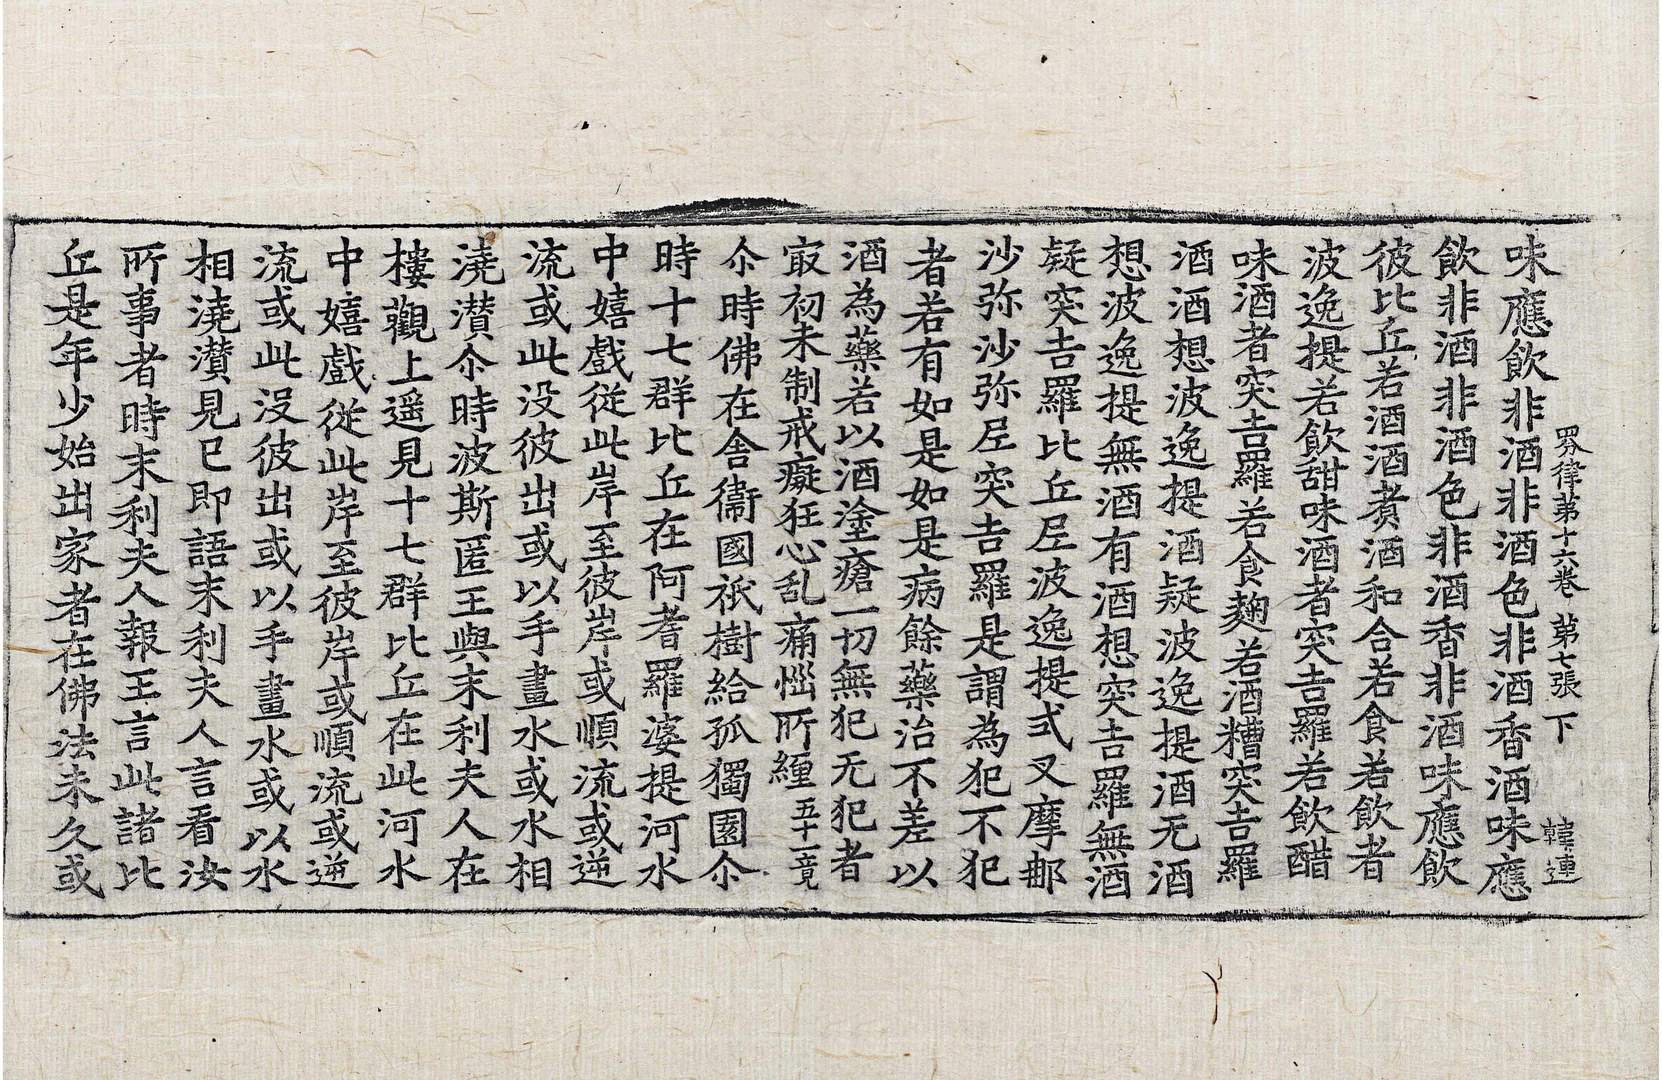 四分律第十六卷 第七張 下 韓連
味應飲非酒非酒色非酒香酒味應
飲非酒非酒色非酒香非酒味應飲
彼比丘若酒酒煑酒和合若食若飲者
波逸提若飲甜味酒者突吉羅若飲醋
味酒者突吉羅若食麴若酒糟突吉羅
酒酒想波逸提酒疑波逸提酒无酒
想波逸提無酒有酒想突吉羅無酒
疑突吉羅比丘尼波逸提式叉摩那
沙弥沙弥尼突吉羅是謂為犯不犯
者若有如是如是病餘藥治不差以
酒為藥若以酒塗瘡一切無犯无犯者
㝡初未制戒癡狂心乱痛惱所纏五十一竟
尒時佛在舍衞國祇樹給孤獨園尒
時十七群比丘在阿耆羅婆提河水
中嬉戲從此岸至彼岸或順流或逆
流或此没彼出或以手畫水或水相
澆灒尒時波斯匿王與末利夫人在
樓觀上遥見十七群比丘在此河水
中嬉戲從此岸至彼岸或順流或逆
流或此没彼出或以手畫水或以水
相澆灒見已即語末利夫人言看汝
所事者時末利夫人報王言此諸比
丘是年少始出家者在佛法未久或